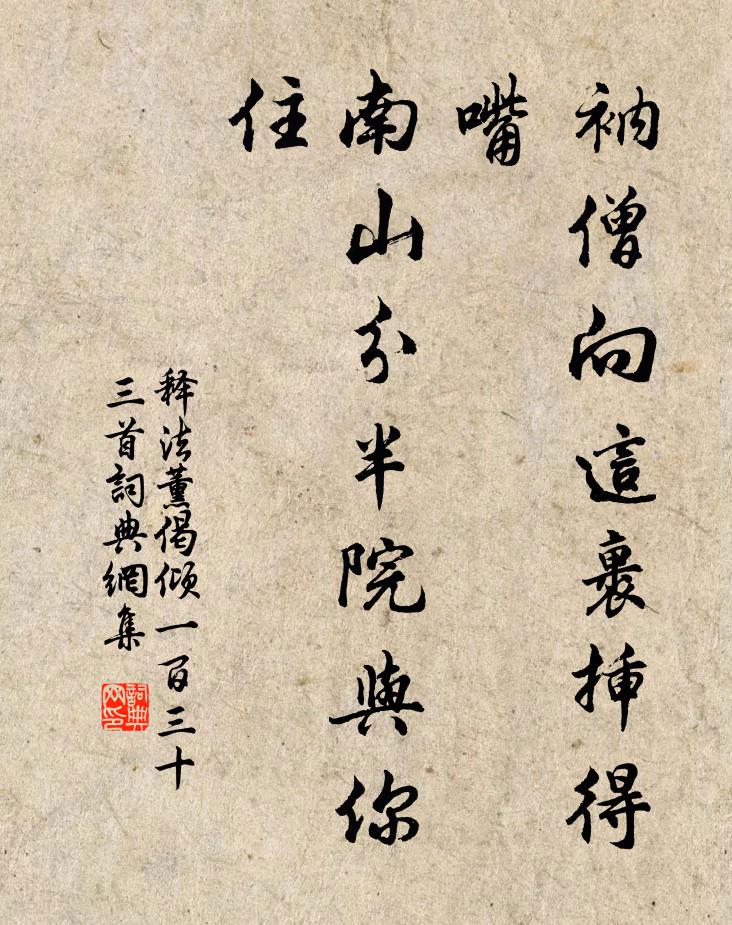 衲僧向這裹挿得
嘴
南山分半院與你
住
释法薰偈倾一百三十
三首詞典網集
詞典網印